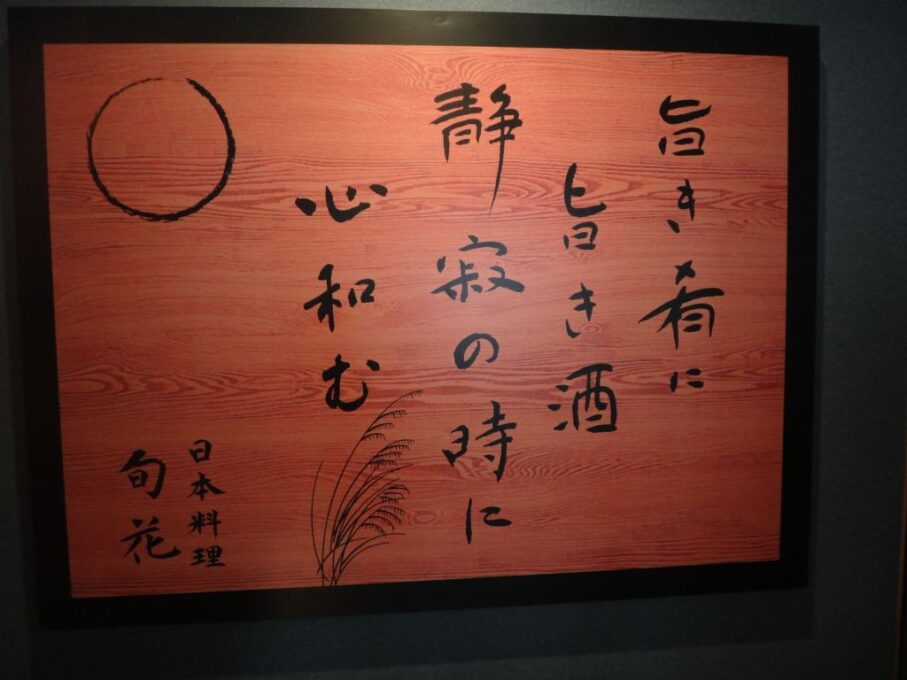 旨き肴に
旨き酒
静寂の時に
心和む
日本料理
旬花